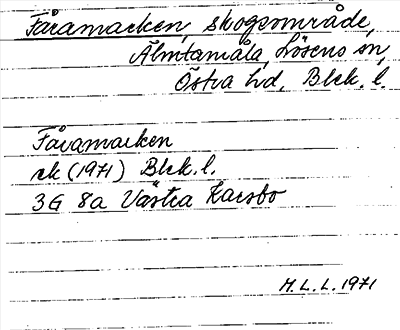 Fåramarken, skogsområde,
Älmtamåla, Lösens sn,
Östra hd, Blek. l.
Fåramarken
ek (1971) Blek. l.
3G 8a Västra Karsbo
H. L. L. 1971